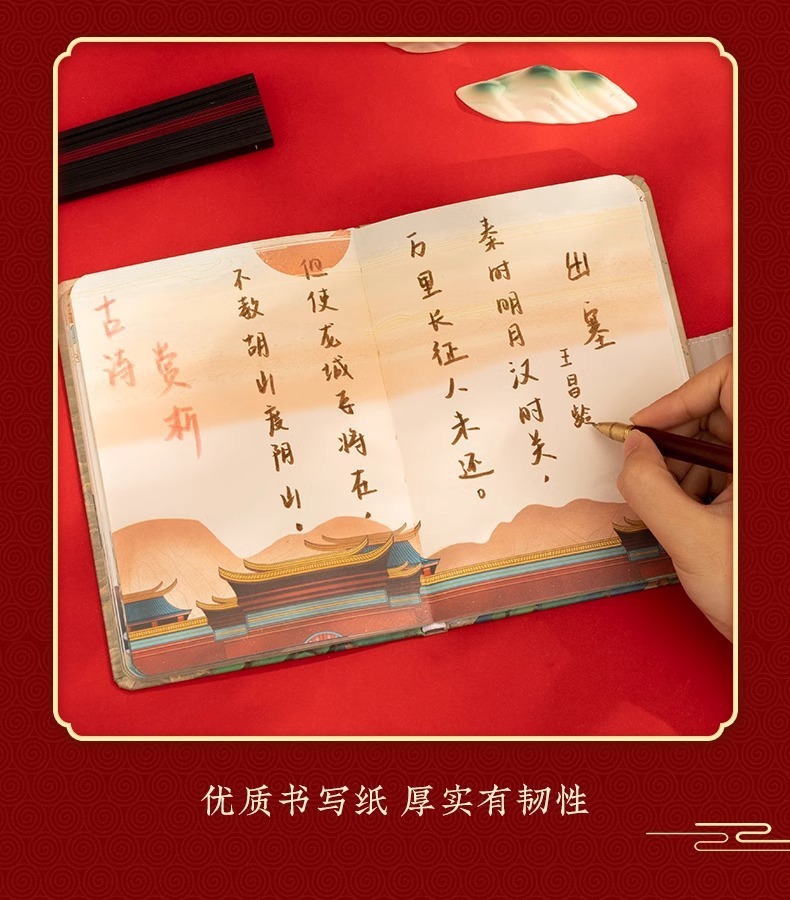 出塞
王昌龄
秦时明月汉时关，
万里长征人未还。
但使龙城飞将在，
不教胡山度阴山。
古诗
赏析
优质书写纸 厚实有韧性